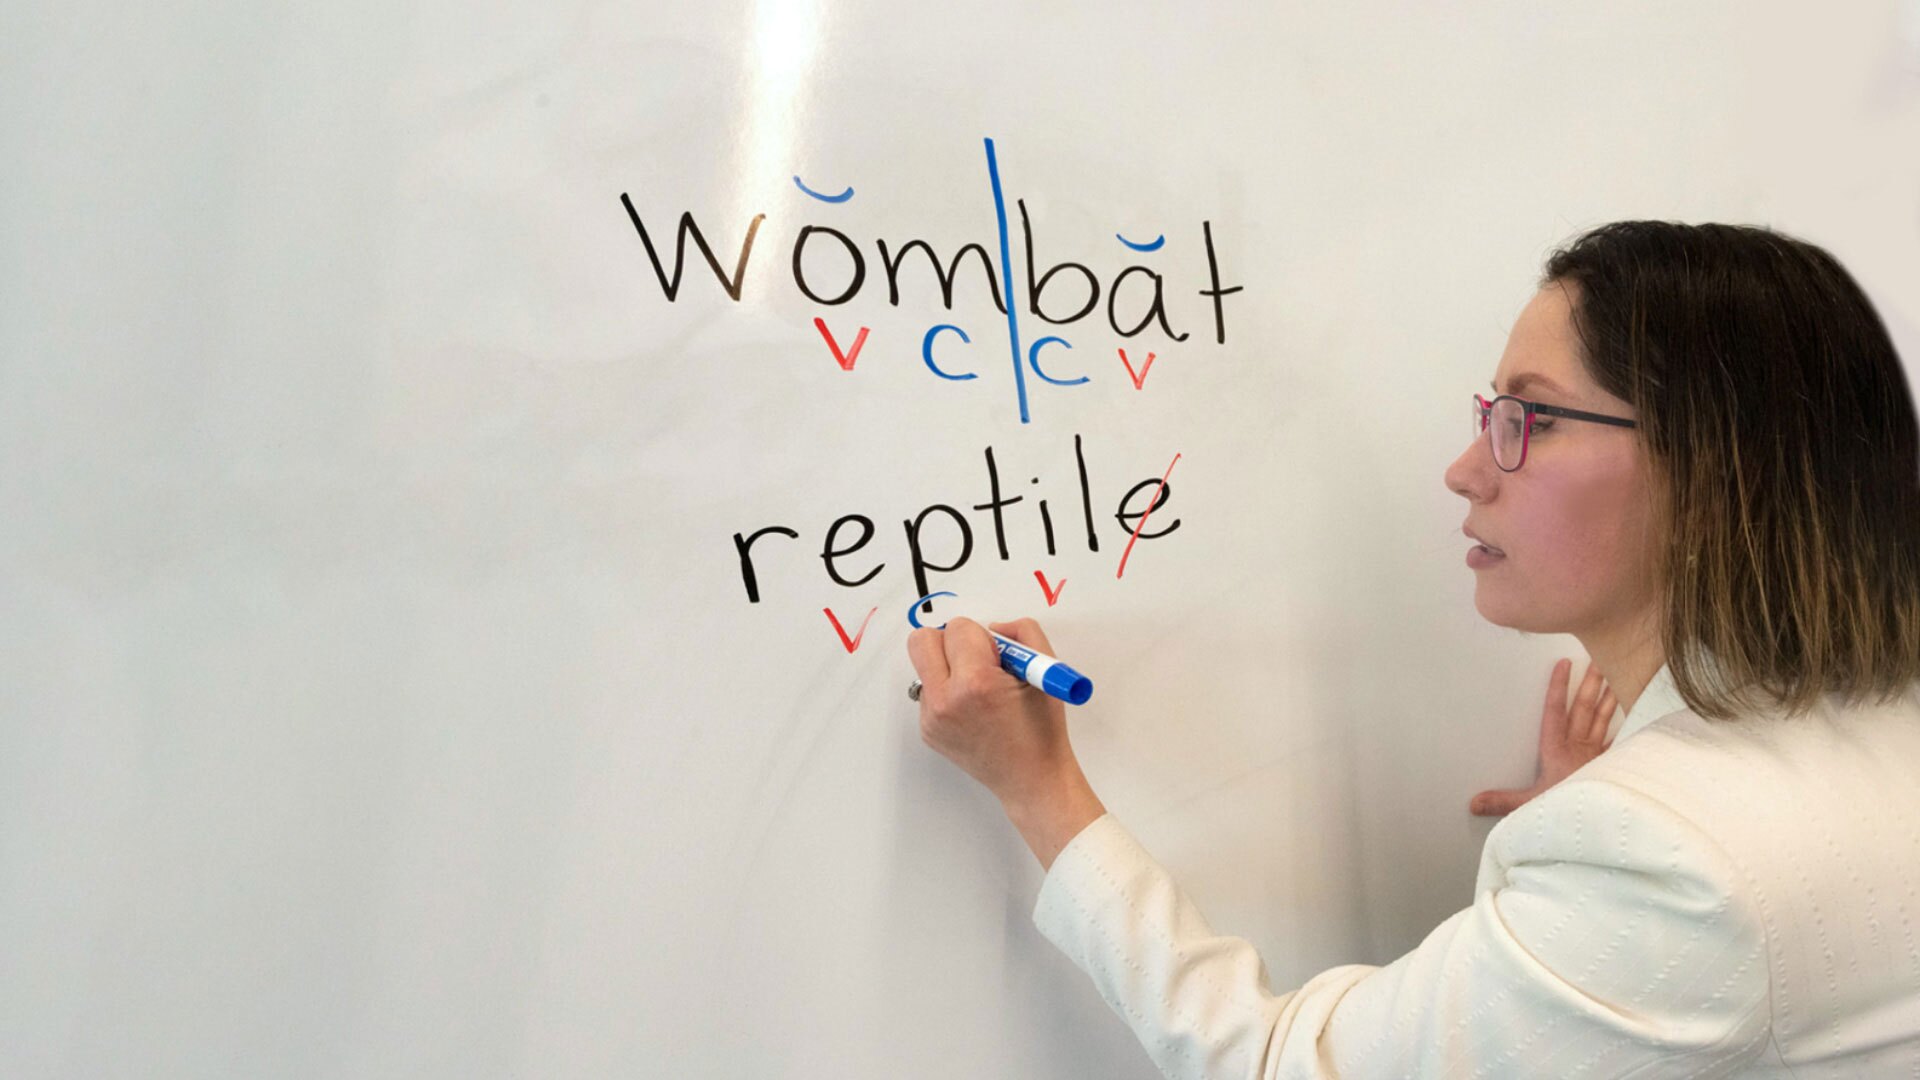 wŏm|băt
V C C V
reptile
V C V